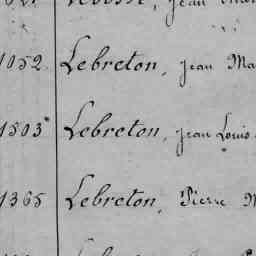 1052 Lebreton, Jean Ma
1503 Lebreton, Jean Louis
1365 Lebreton, Pierre M